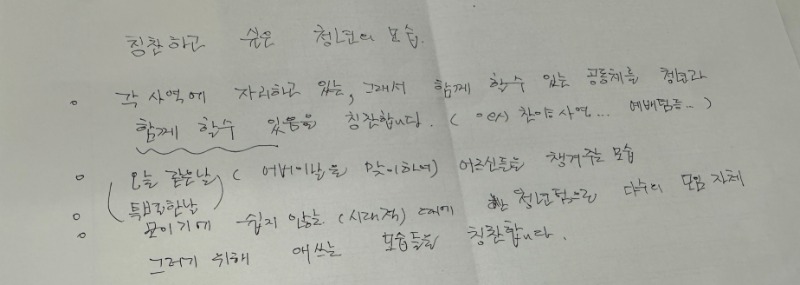 칭찬하고 싶은 청년의 모습.
각 사역에 자리하고 있는, 그래서 함께 할수 있는 공동체를 청년과
함께 할수 있음을 칭찬합니다. (예시) 찬양사역... 예배팀등...)
오늘 같은날 (어버이날을 맞이하여) 어르신들을 챙겨주는 모습
특별한날
모이기에 쉽지 않는 (시대적) 때에 청년팀으로 다수의 모임 자체
그러기 위해 애쓰는 모습들을 칭찬합니다.